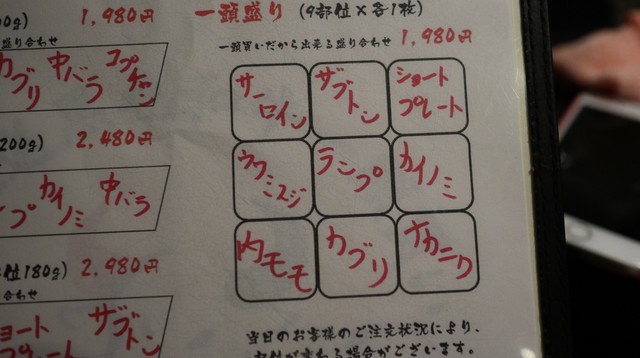 1,980円
盛り合わせ
カブリ 中バラ コプチャン
200g) 2,480円
カイノミ 中バラ
位180g) 2,980円
合わせ
ョート ザブトン
プレート
一頭盛り (9部位×各1枚)
一頭買いだから出来る盛り合わせ 1,980円
サーロイン ザブトン ショートプレート
ウワミスジ ランプ カイノミ
内モモ カブリ ナカニク
当日のお客様のご注文状況により、
部位が変わる場合がございます。